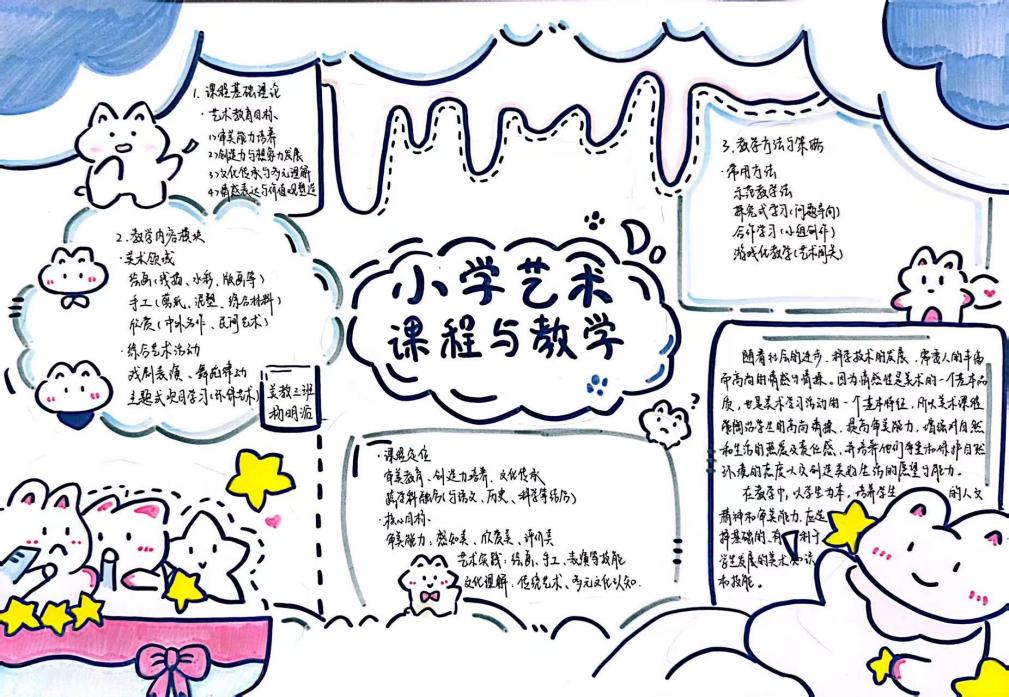 小学艺术
课程与教学
1. 课程基础理论
·艺术教育目标、
1)审美能力培养
2)创造力与想象力发展
3)文化传承与多元理解
4)情感表达与价值观塑造
2. 教学内容模块
·美术领域
绘画(线描、水彩、版画等)
手工(剪纸、泥塑、综合材料)
欣赏(中外名作、民间艺术)
·综合艺术活动
戏剧表演、舞蹈律动
主题式项目学习(环保艺术)
美教三班
杨明
3. 教学方法与策略
·常用方法
示范教学法
探究式学习(问题导向)
合作学习(小组创作)
游戏化教学(艺术闯关)
·课程定位
审美教育、创造力培养、文化传承
跨学科融合(与语文、历史、科学等结合)
·核心目标、
审美能力:感知美、欣赏美、评价美
艺术实践:绘画、手工、表演等技能
文化理解:传统艺术、多元文化认知.
随着社会的进步、科学技术的发展、需要人的丰富
而高尚的情感与情操。因为情感性是美术的一个基本品
质,也是美术学习活动的一个基本特征,所以美术课程
能陶冶学生的高尚情操,提高审美能力,增强对自然
和生活的热爱及责任感,并培养他们尊重和保护自然
环境的态度以及创造美好生活的愿望与能力。
在教学中,以学生为本,培养学生的人文
精神和审美能力,应选
择基础的、有利于
学生发展的美术知识
和技能。
?